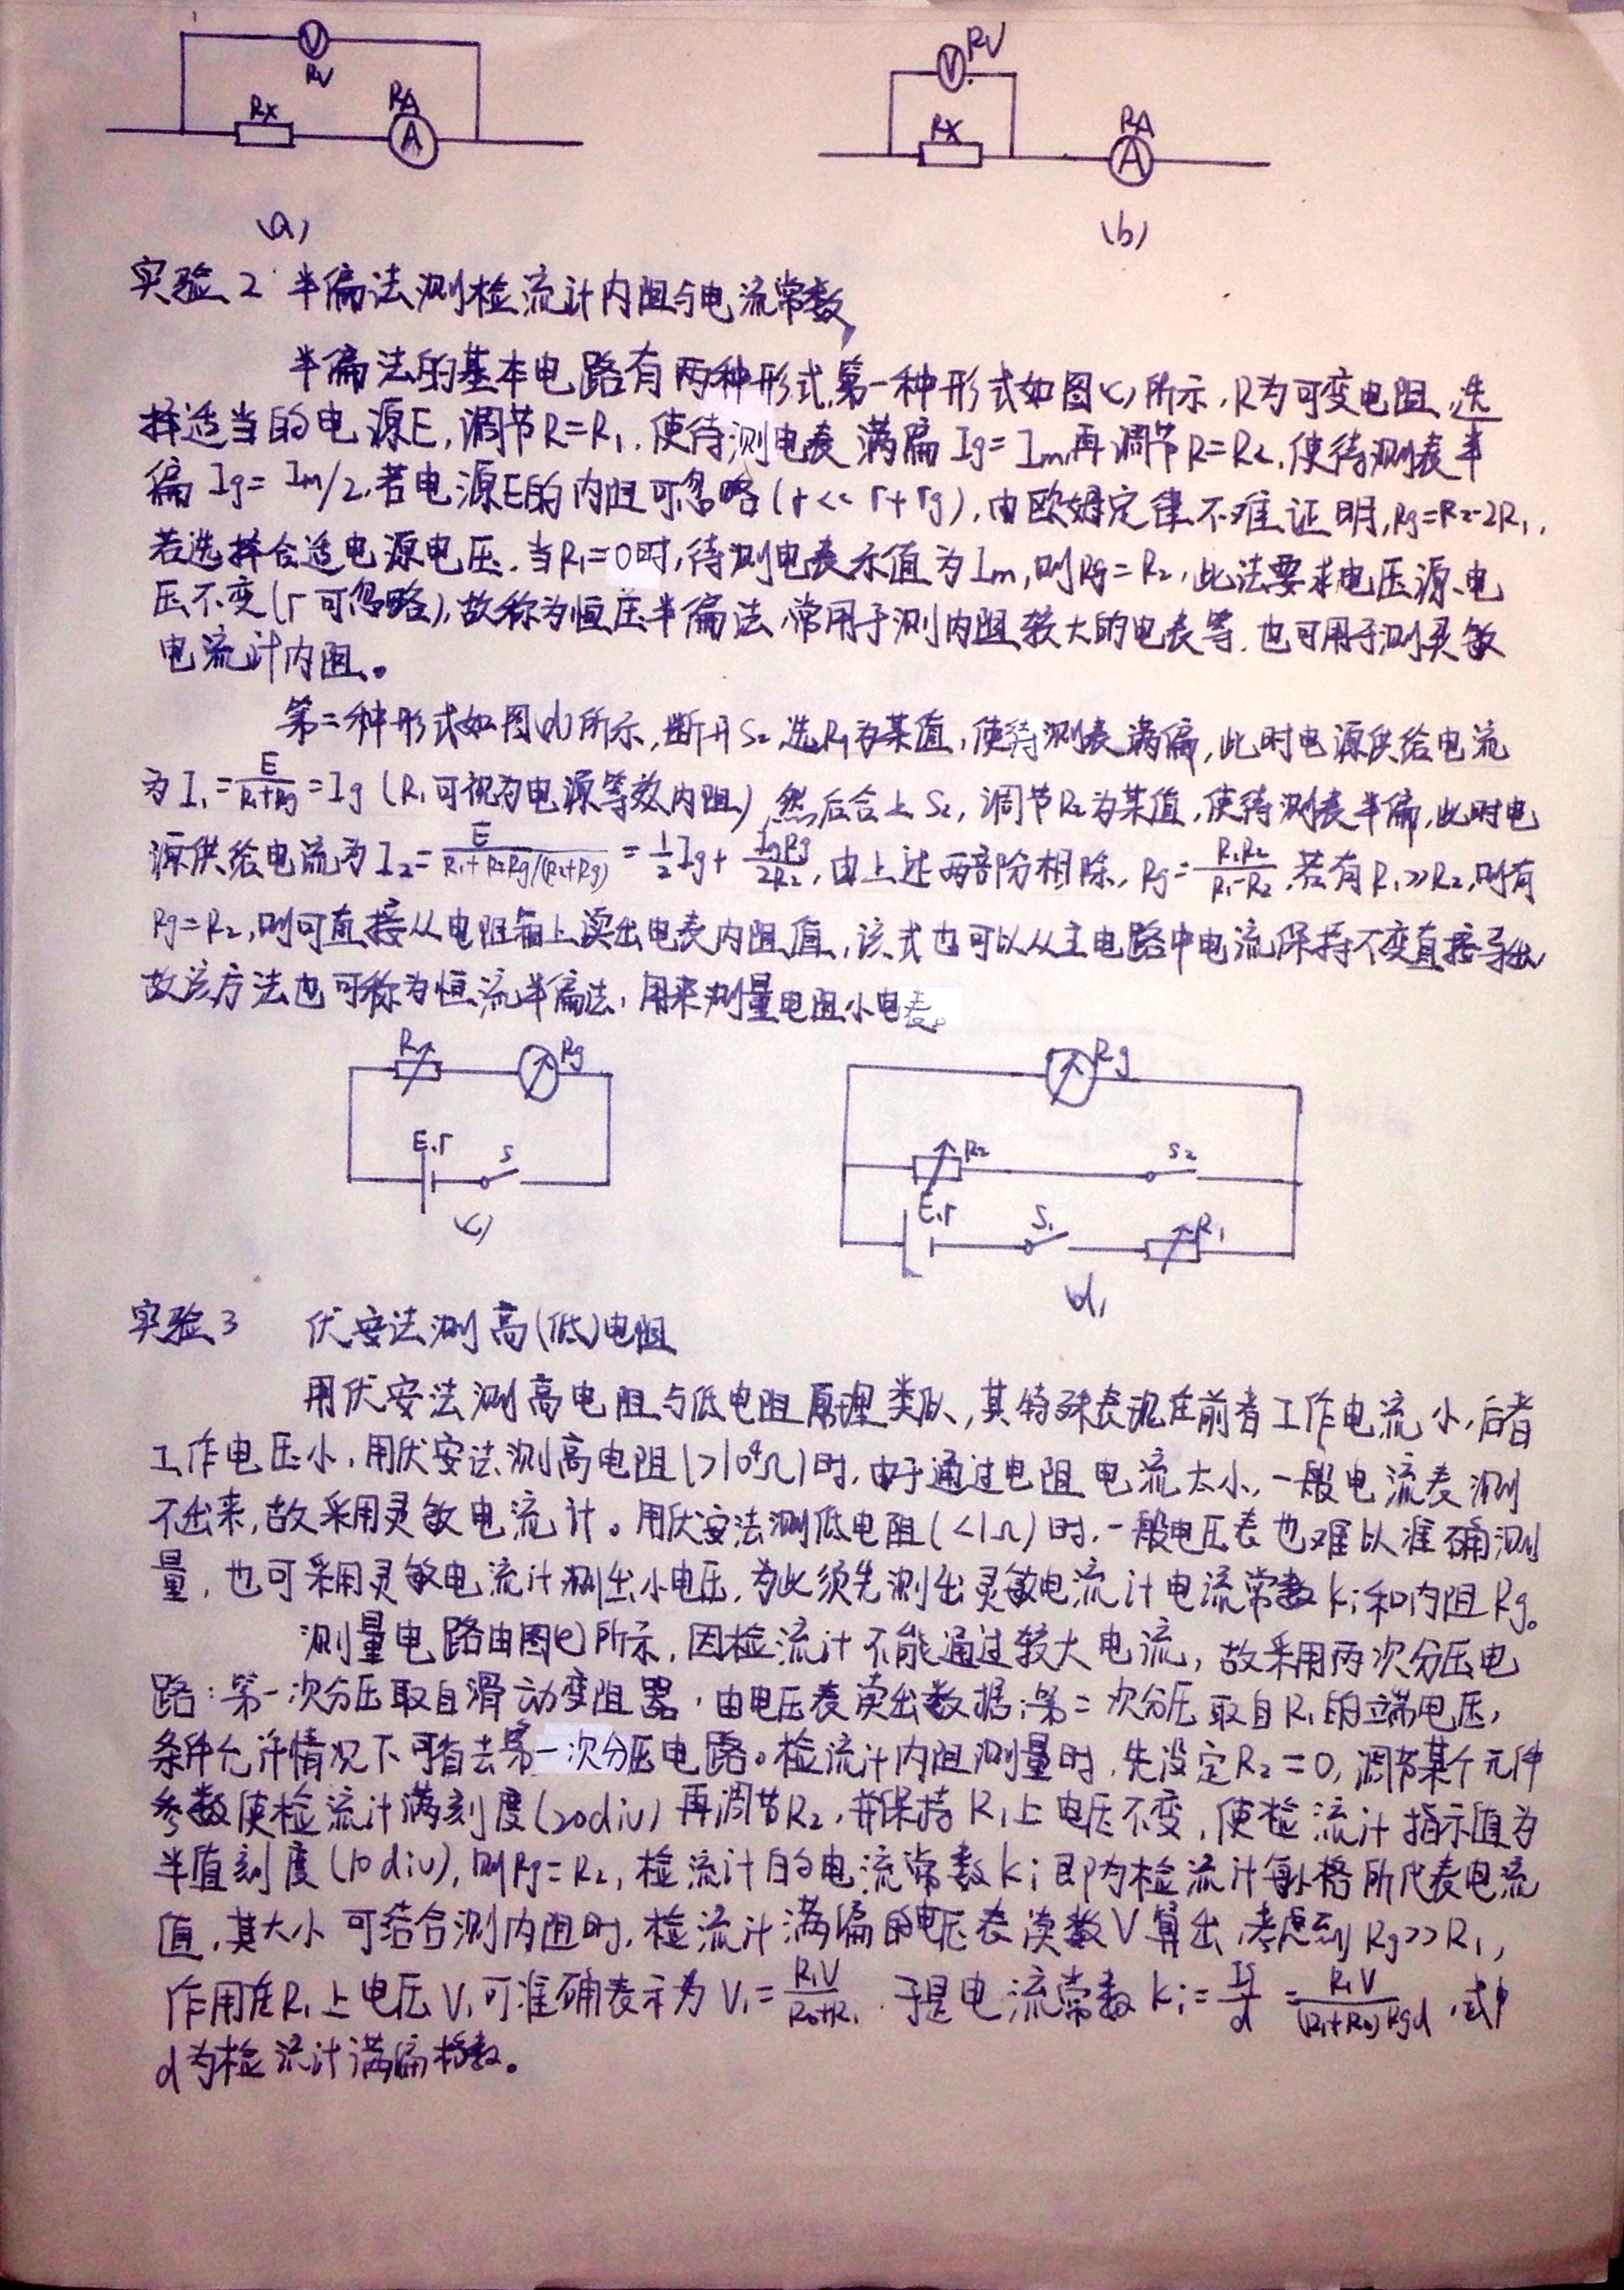 V RV
RV
Rx RA A
V
Rx RA A
(a) (b)
实验2 半偏法测检流计内阻与电流常数
半偏法的基本电路有两种形式,第一种形式如图(c)所示,R为可变电阻,选
择适当的电源E,调节R=R1,使待测电表满偏Ig=Im,再调节R=R2,使待测表半
偏Ig=Im/2,若电源E的内阻可忽略(r<<r+rg),由欧姆定律不难证明,Rg=R2-2R1,
若选择合适电源电压,当R1=0时,待测电表示值为Im,则Rg=R2,此法要求电压源、电
压不变(r可忽略),故称为恒压半偏法,常用于测内阻较大的电表等,也可用于测灵敏
电流计内阻。
第二种形式如图(d)所示,断开S2,选R1为某值,使待测表满偏,此时电源供给电流
为I1=E/(R1+Rg)=Ig(R1可视为电源等效内阻),然后合上S2,调节R2为某值,使待测表半偏,此时电
源供给电流为I2=E/(R1+R2Rg/(R2+Rg))=1/2Ig+IgRg/2R2,由上述两部分相除,Rg=R1R2/(R1-R2),若有R1>>R2,则有
Rg=R2,则可直接从电阻箱上读出电表内阻值,该式也可以从主电路中电流保持不变直接导出
故该方法也可称为恒流半偏法,用来测量电阻小电表。
R Rg
Rg
E.r S
R2 S2
(c)
E.r S1 R1
(d)
实验3 伏安法测高(低)电阻
用伏安法测高电阻与低电阻原理类似,其特殊表现在前者工作电流小,后者
工作电压小,用伏安法测高电阻(>10⁴Ω)时,由于通过电阻电流太小,一般电流表测
不出来,故采用灵敏电流计。用伏安法测低电阻(<1Ω)时,一般电压表也难以准确测
量,也可采用灵敏电流计测出小电压,为此须先测出灵敏电流计电流常数Ki和内阻Rg。
测量电路由图(e)所示,因检流计不能通过较大电流,故采用两次分压电
路:第一次分压取自滑动变阻器,由电压表读出数据;第二次分压取自R1的端电压,
条件允许情况下可省去第一次分压电路。检流计内阻测量时,先设定R2=0,调节某个元件
参数使检流计满刻度(20div)再调节R2,并保持R1上电压不变,使检流计指示值为
半值刻度(10div),则Rg=R2,检流计的电流常数Ki即为检流计每小格所代表电流
值,其大小可结合测内阻时,检流计满偏的电压表读数V算出,考虑到Rg>>R1,
作用在R1上电压V1可准确表示为V1=R1V/(R0+R1),于是电流常数Ki=Ig/d=R1V/((R1+R0)Rgd),式中
d为检流计满偏格数。